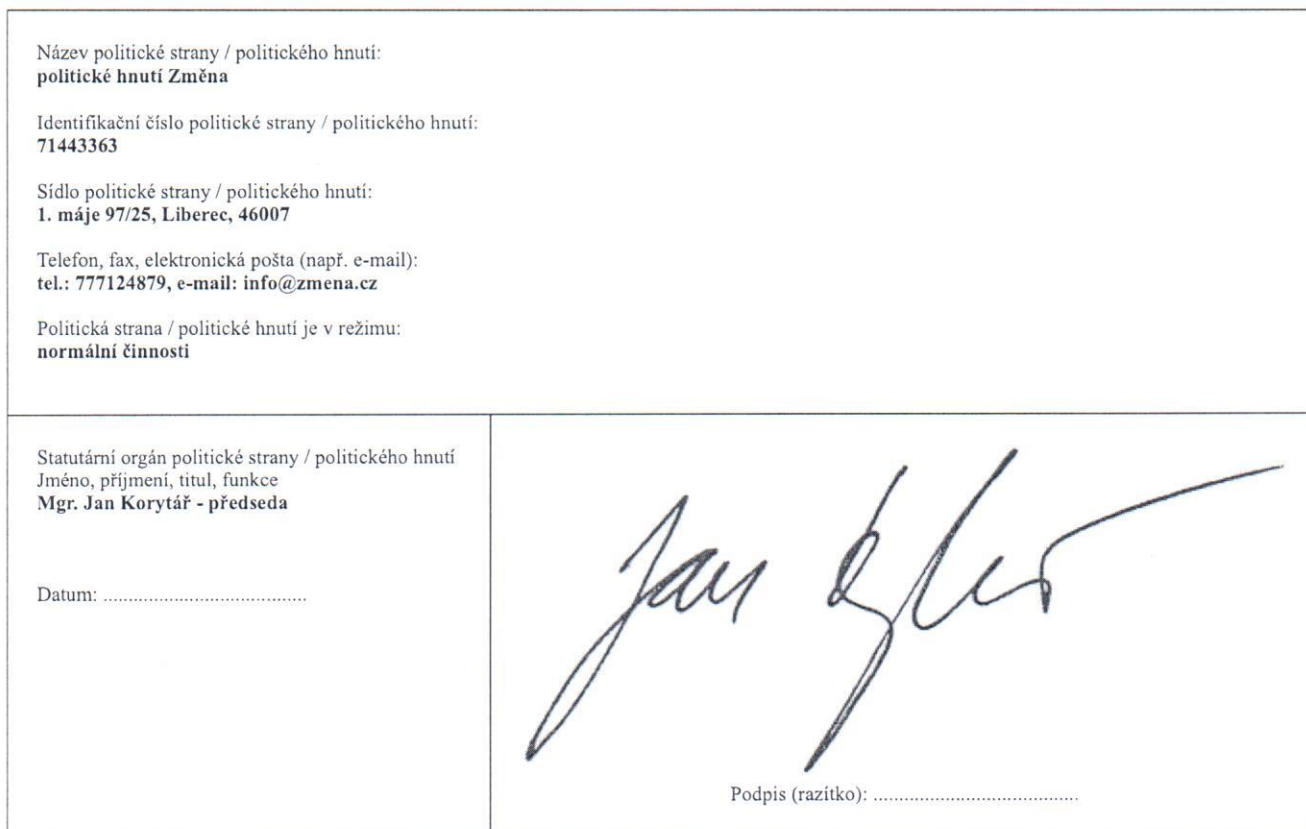 Název politické strany / politického hnutí:
politické hnutí Změna
Identifikační číslo politické strany / politického hnutí:
71443363
Sídlo politické strany / politického hnutí:
1. máje 97/25, Liberec, 46007
Telefon, fax, elektronická pošta (např. e-mail):
tel.: 777124879, e-mail: info@zmena.cz
Politická strana / politické hnutí je v režimu:
normální činnosti
Statutární orgán politické strany / politického hnutí
Jméno, příjmení, titul, funkce
Mgr. Jan Korytář - předseda
Datum: ........................................
Jan
Podpis (razítko): ........................................